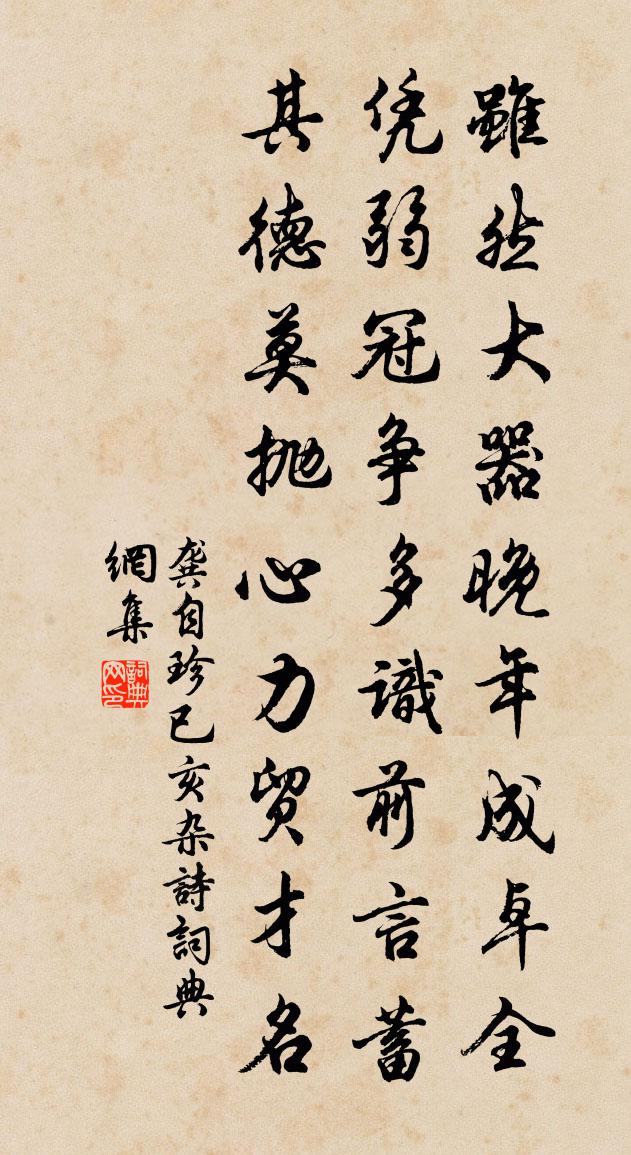 雖然大器晚年成卓全
凭弱冠争多識前言蓄
其德莫抛心力貿才名
龚自珍已亥杂詩詞典
網集
詞典
网印